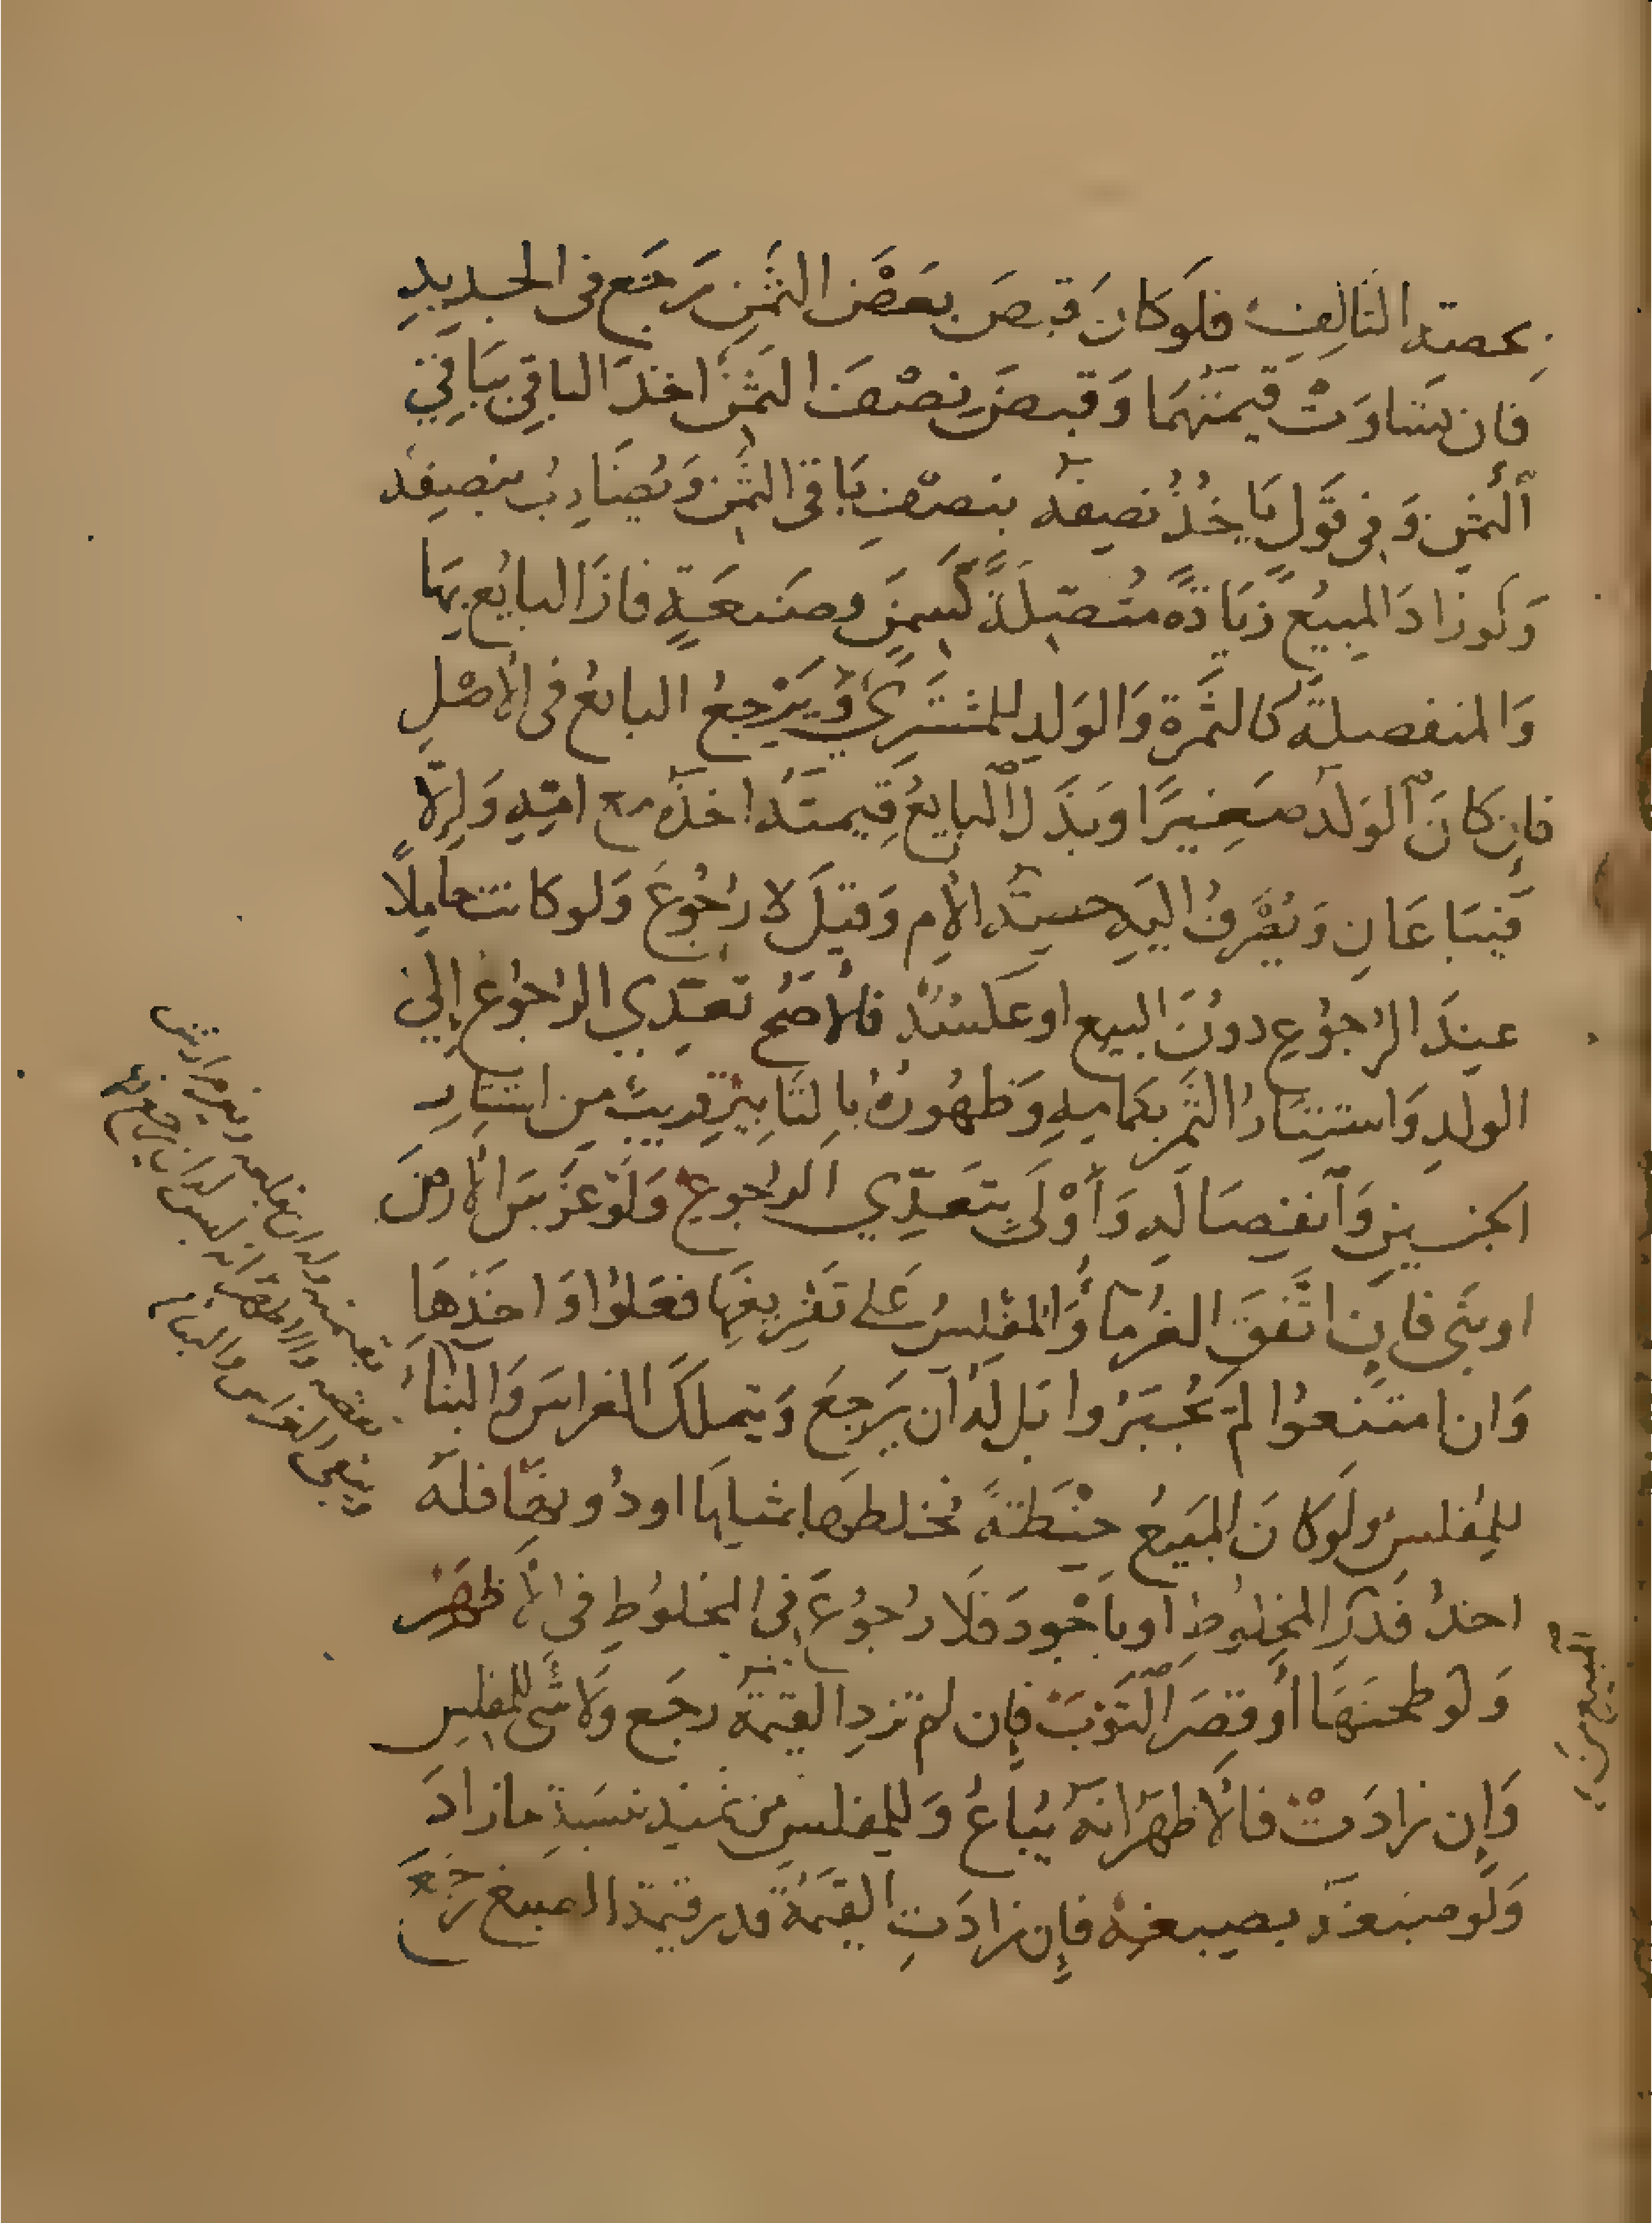 بحصته التالف فلو كان قبض بعض الثمن رجع في الجديد
فان تساوت قيمتهما وقبض نصف الثمن اخذ الباقي بباقي
الثمن وفي قول ياخذ نصفه بنصف باقي الثمن ويضارب بنصفه
ولو زاد المبيع زيادة متصلة كسمن وصنعة فاز البايع بها
والمنفصلة كالثمرة والولد للمشتري ويرجع البايع في الاصل
فان كان الولد صغيرا وبذل البايع قيمته اخذه مع امه والا
فيباعان ويصرف اليه حصة الام وقيل لا رجوع ولو كانت حاملا
عند الرجوع دون البيع او عكسه فالاصح تعدي الرجوع الى
الولد واستتار الثمر بكمامه وظهوره بالتابير قريب من استتار
الجنين وانفصاله واولى بتعدي الرجوع ولو غرس الارض
او بنى فان اتفق الغرما والمفلس على تفريغها فعلوا واخذها
وان امتنعوا لم يجبروا بل له ان يرجع ويتملك الغراس والبناء
بقيمته وله ان يقلعه ويغرم ارش
نقصه والاظهر انه ليس له ان يرجع فيها
ويبقى الغراس والبناء
للمفلس ولو كان المبيع حنطة فخلطها بمثلها او دونها فله
اخذ قدر المبيع من المخلوط او باجود فلا رجوع في المخلوط في الاظهر
ولو طحنها او قصر الثوب فان لم تزد القيمة رجع ولا شي للمفلس
وان زادت فالاظهر انه يباع وللمفلس من ثمنه نسبة ما زاد
ولو صبغه بصبغه فان زادت القيمة قدر قيمة الصبغ رجع